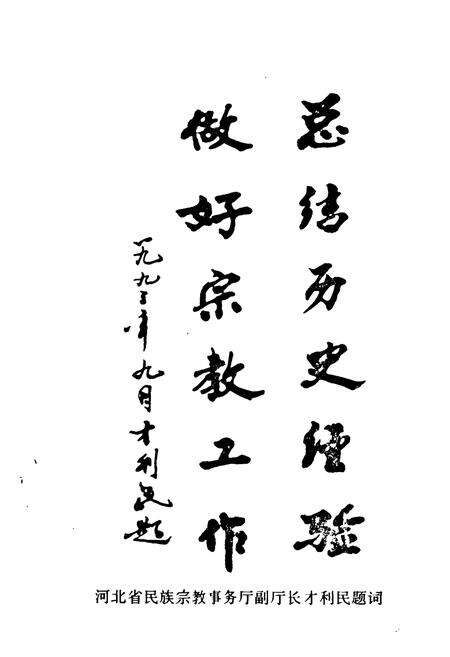 总结历史经验
做好宗教工作
一九九三年九月才利民题
河北省民族宗教事务厅副厅长才利民题词